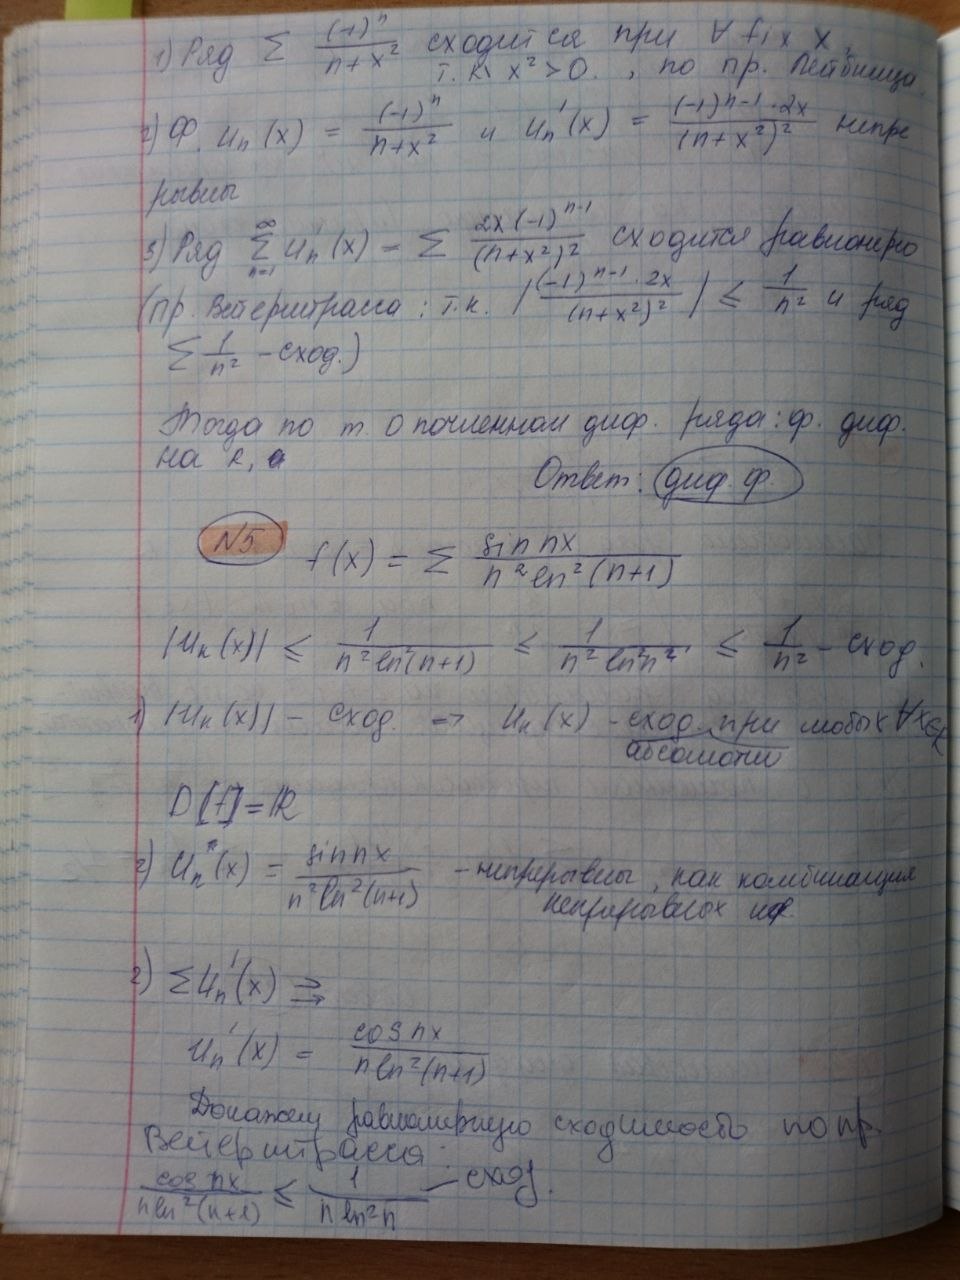 1) Ряд ∑ (-1)^n / (n+x²) сходится при ∀ fix x,
т.к x² > 0. , по пр. Лейбница
2) Ф. u_n(x) = (-1)^n / (n+x²) и u_n'(x) = (-1)^{n-1}·2x / (n+x²)² непре
рывны
3) Ряд ∑_{n=1}^∞ u_n'(x) = ∑ 2x(-1)^{n-1} / (n+x²)² сходится равномерно
(пр. Вейерштрасса : т.к. |(-1)^{n-1}·2x / (n+x²)²| ≤ 1/n² и ряд
∑ 1/n² - сход.)
Тогда по т. о почленном диф. ряда: ф. диф.
на R,
Ответ: диф. ф.
N5 f(x) = ∑ sin nx / (n² ln²(n+1))
|u_n(x)| ≤ 1 / (n² ln²(n+1)) ≤ 1 / (n² ln² n) ≤ 1/n² - сход.
1) |u_n(x)| - сход. → u_n(x) - сход. при любых ∀x∈R
абсолютно
D[f] = R
2) u_n(x) = sin nx / (n² ln²(n+1)) - непрерывны, как комбинация
непрерывных
2) ∑ u_n'(x) ⇉
u_n'(x) = cos nx / (n ln²(n+1))
Докажем равномерную сходимость по пр.
Вейерштрасса:
cos nx / (n ln²(n+1)) ≤ 1 / (n ln² n) - сход.